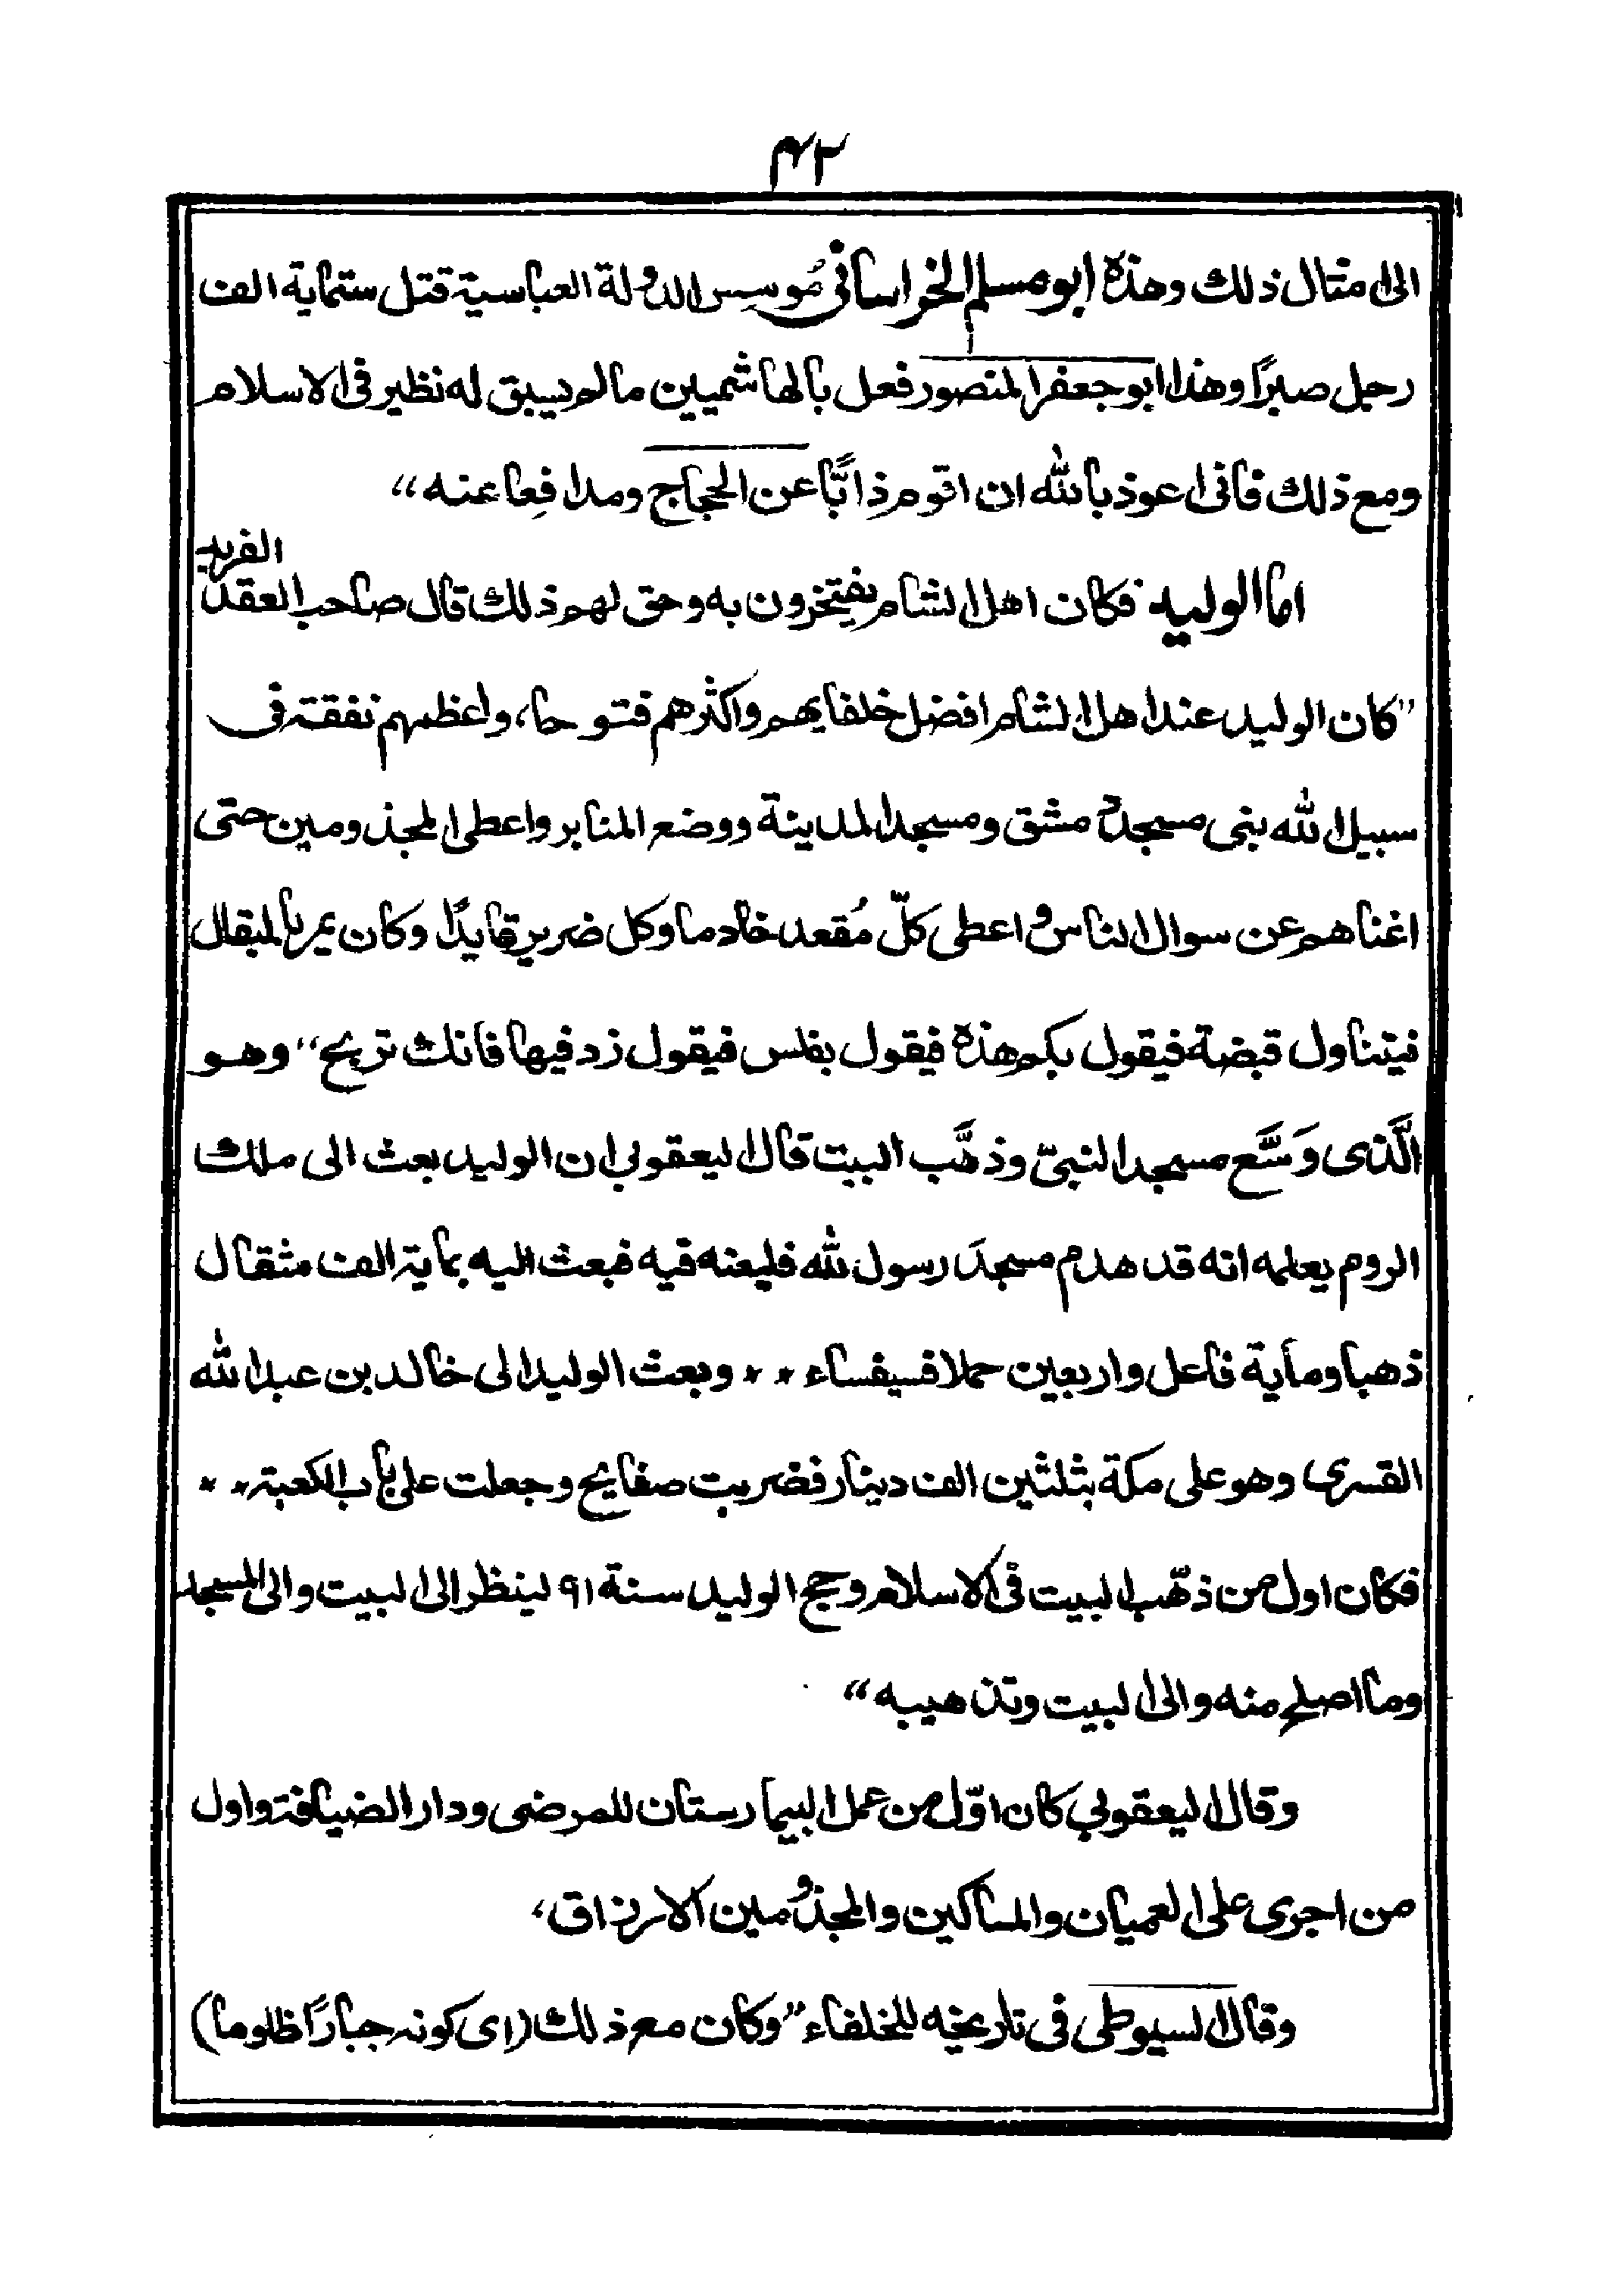 ۴۲
الى امثال ذلك وهذه ابو مسلم الخراسانى مُوسس الدولة العباسية قتل ستماية الف
رجل صبرًا وهذا ابو جعفر المنصور فعل بالهاشميين مالم يسبق له نظير فى الاسلام
ومع ذلك فانى اعوذ بالله ان اقوم ذابًّا عن الحجاج ومدافِعا عنه“
اما الوليد فكان اهل الشام يفتخرون به وحق لهم ذلك قال صاحب العقد الفريد
”كان الوليد عند اهل الشام افضل خلفايهم واكثرهم فتوحا، واعظمهم نفقة فى
سبيل الله بنى مسجد دمشق ومسجد المدينة ووضع المنابر واعطى المجذومين حتى
اغناهم عن سوال الناس واعطى كلّ مُقعد خادما وكل ضرير قايدًا وكان يمر بالبقال
فيتناول قبضة فيقول بكم هذه فيقول بفلس فيقول زد فيها فانك تربح“ وهو
الَّذى وَسَّع مسجد النبىّ وذهَّب البيت قال اليعقوبى ان الوليد بعث الى ملك
الروم يعلمه انه قد هدم مسجدَ رسول الله فليعنه فيه فبعث اليه بماية الف مثقال
ذهبا وماية فاعل واربعين حملا فسيفساء * * وبعث الوليد الى خالد بن عبد الله
القسرى وهو على مكة بثلثين الف دينار فضربت صفايح وجعلت على باب الكعبة * *
فكان اول من ذهّب البيت فى الاسلام وحج الوليد سنة ٩١ لينظر الى البيت والى المسجد
وما اصلح منه والى البيت وتذهيبه“
وقال اليعقوبى كان اوّل من عمل البيمارستان للمرضى ودار الضيافة واول
من اجرى على العميان والمساكين والمجذُومين الارزاق،
وقال السيوطى فى تاريخه للخلفاء ”وكان مع ذلك (اى كونه جبارًا ظلوما)